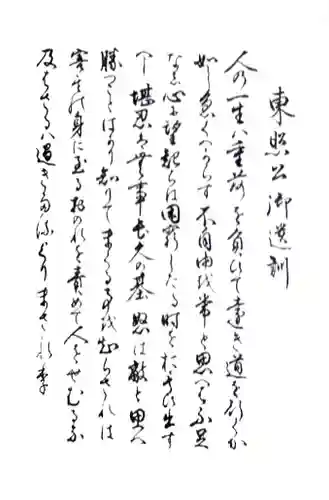 東照公御遺訓
人の一生ハ重荷を負ひて遠き道を行くか
如し急くへからす不自由を常と思へは不足
なし心に望起らは困窮したる時をおもひ出す
へし堪忍は無事長久の基怒は敵と思へ
勝つことはかり知りてまくる事を知らされは
害其の身に至るおのれを責めて人をせむるな
及はさるハ過きたるよりまされり